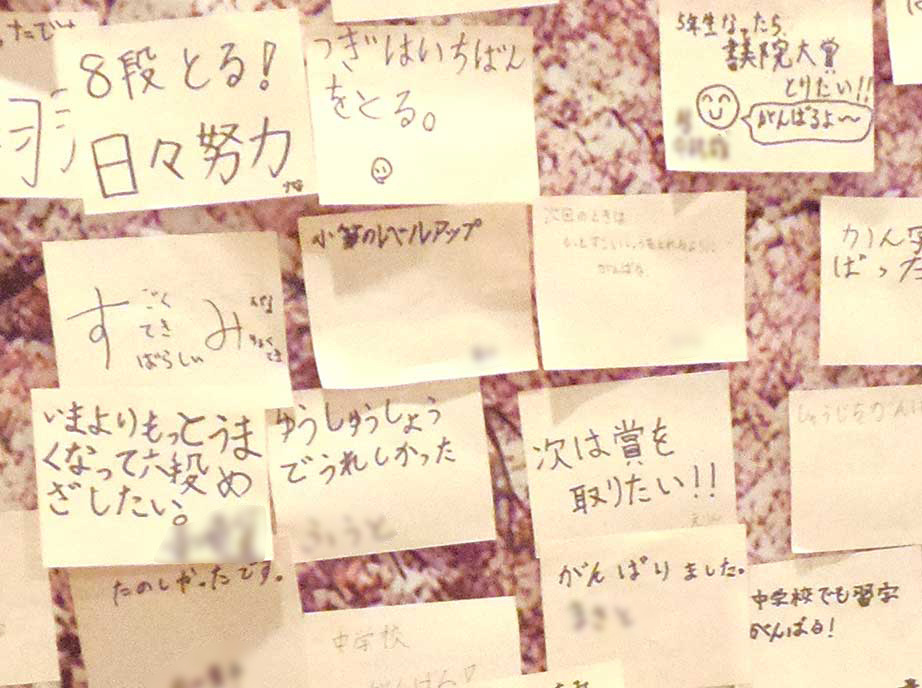 8段とる!
日々努力
つぎはいちばん
をとる。
5年生なったら
書美院大賞
とりたい!!
がんばるよ〜
すごくてきばらしい
み
小筆のレベルアップ
次回のときは
がんばる
かん字
ばった
いまよりもっとうま
くなって六段め
ざしたい。
ゆうしゅうしょう
でうれしかった
次は賞を
取りたい!!
しゅうじをがん
たのしかったです。
中学校
がんばる!
がんばりました。
中学校でも習字
がんばる!